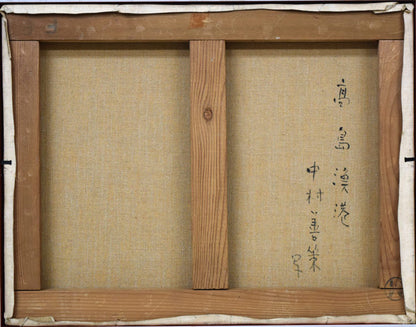 高島漁港
中村善策